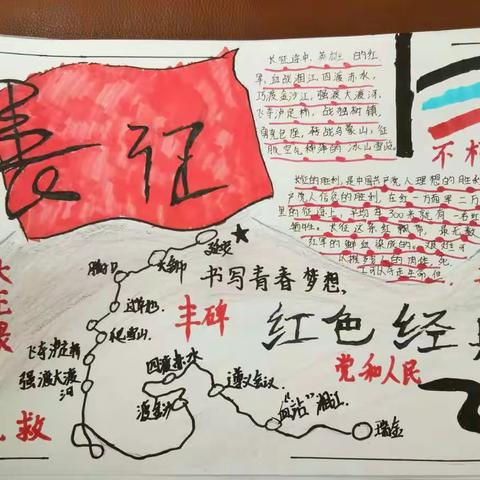 长征
长征途中,英雄的红
军,血战湘江,四渡赤水,
巧渡金沙江,强渡大渡河,
飞夺泸定桥,战独树镇,
包座,转战乌蒙山,征
服空气稀薄的冰山雪岭。
不朽
长征的胜利,是中国共产党人理想的胜利
产党人信念的胜利。在红一方面军二万
里的征途上,平均每300米就有一名红
牺牲。长征这条红飘带,是无数
红军的鲜血染成的。艰难可
以摧残人的肉体,死
可以夺走生命,但
延安
吴起镇
腊子口
过草地
爬雪山
飞夺泸定桥
强渡大渡河
四渡赤水
渡金沙
遵义会议
血战湘江
瑞金
书写青春梦想、
丰碑
红色经典
党和人民
大无畏
救